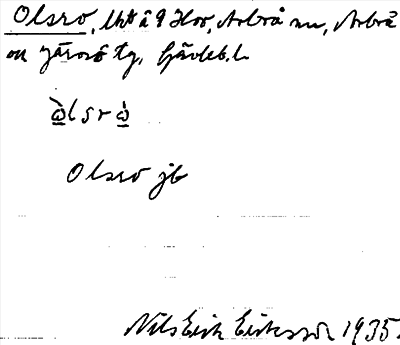 Olsro, lht å 9 Hov, Arbrå sn, Arbrå
on Järvsö tg, Gävleb. l.
òlsrò
Olsro jb
Nils Eric Eriksson 1935.